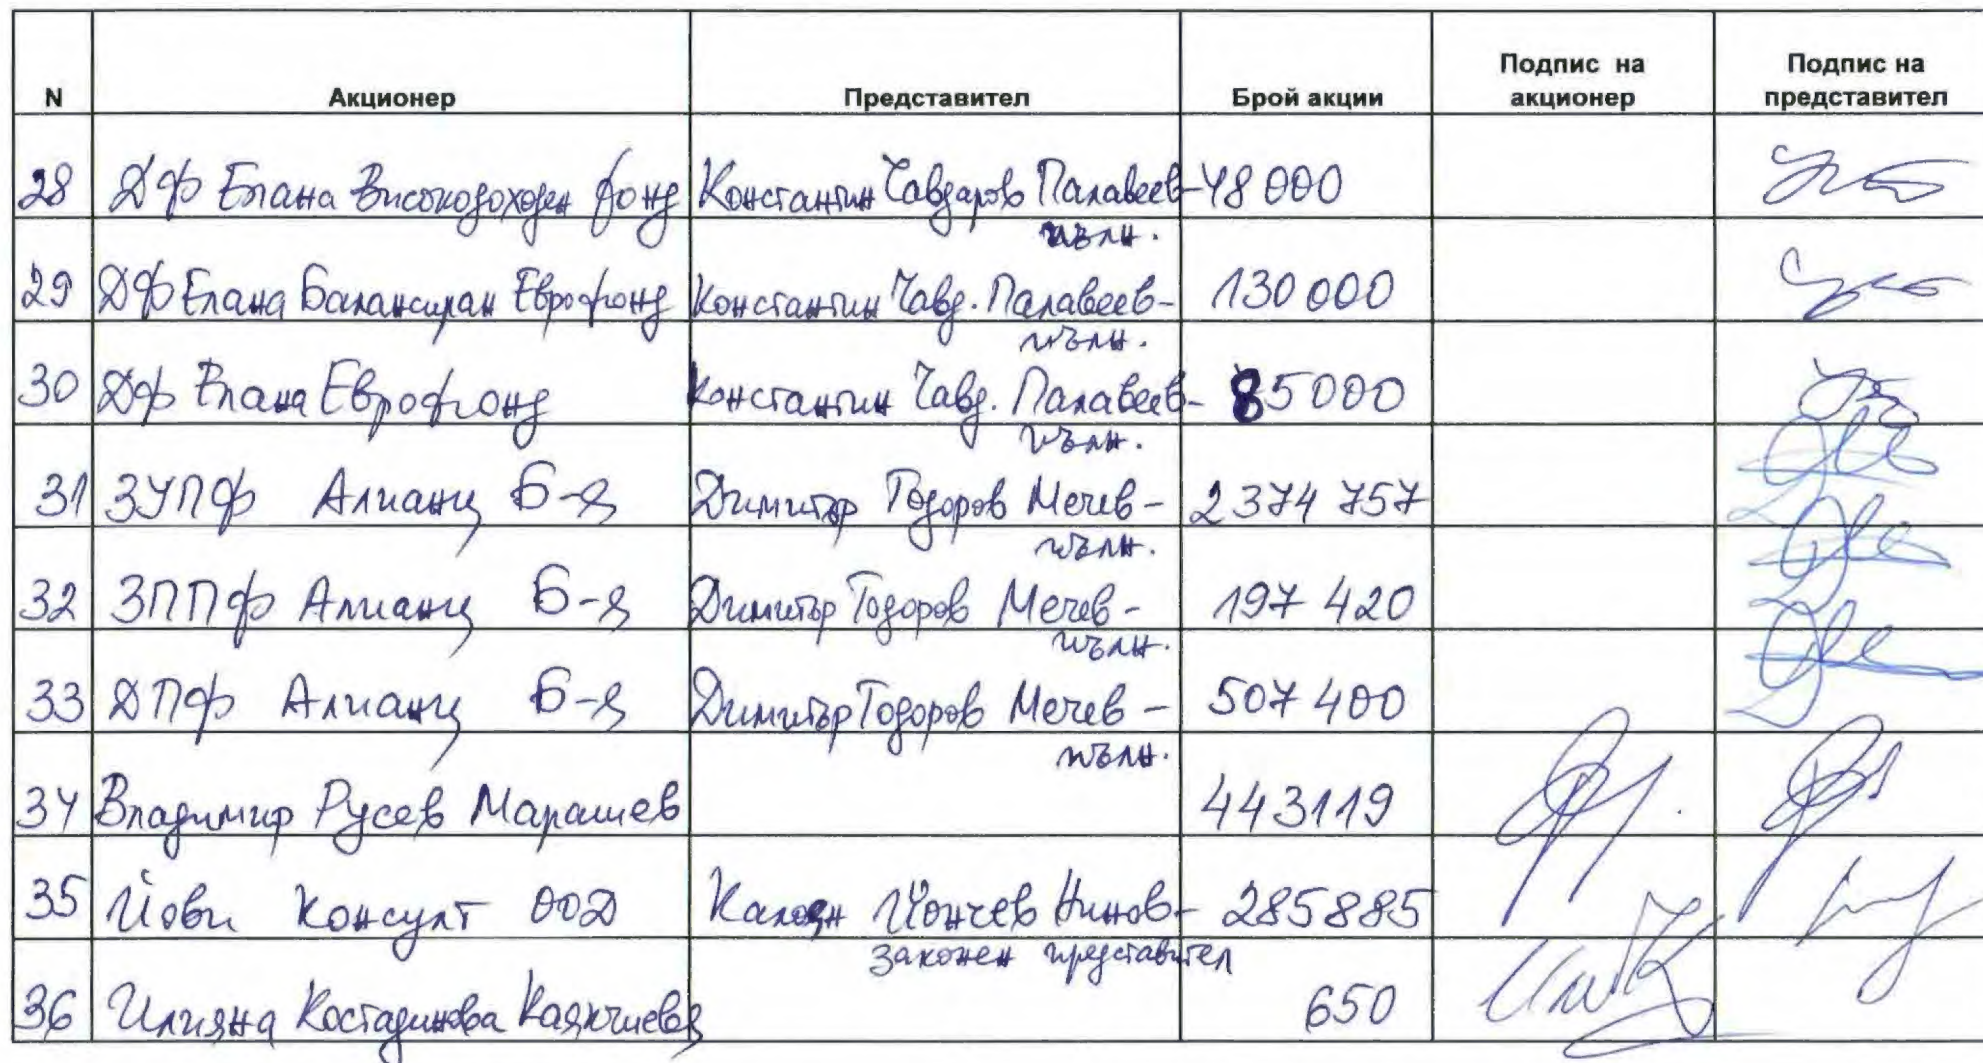 N Акционер Представител Брой акции Подпис на акционер Подпис на представител
28 ДФ Елана Високодоходен фонд Константин Чавдаров Палавеев- 48 000
пълн.
29 ДФ Елана Балансиран Еврофонд Константин Чавд. Палавеев- 130 000
пълн.
30 ДФ Елана Еврофонд Константин Чавд. Палавеев- 85000
пълн.
31 ЗУПФ Алианц Б-я Димитър Тодоров Мечев- 2 374 757
пълн.
32 ЗППФ Алианц Б-я Димитър Тодоров Мечев- 197 420
пълн.
33 ДПФ Алианц Б-я Димитър Тодоров Мечев - 507 400
пълн.
34 Владимир Русев Марашев 443119
35 Йови Консулт ООД Калоян Йончев Нинов- 285885
законен представител
36 Илияна Костадинова Каякчиева 650